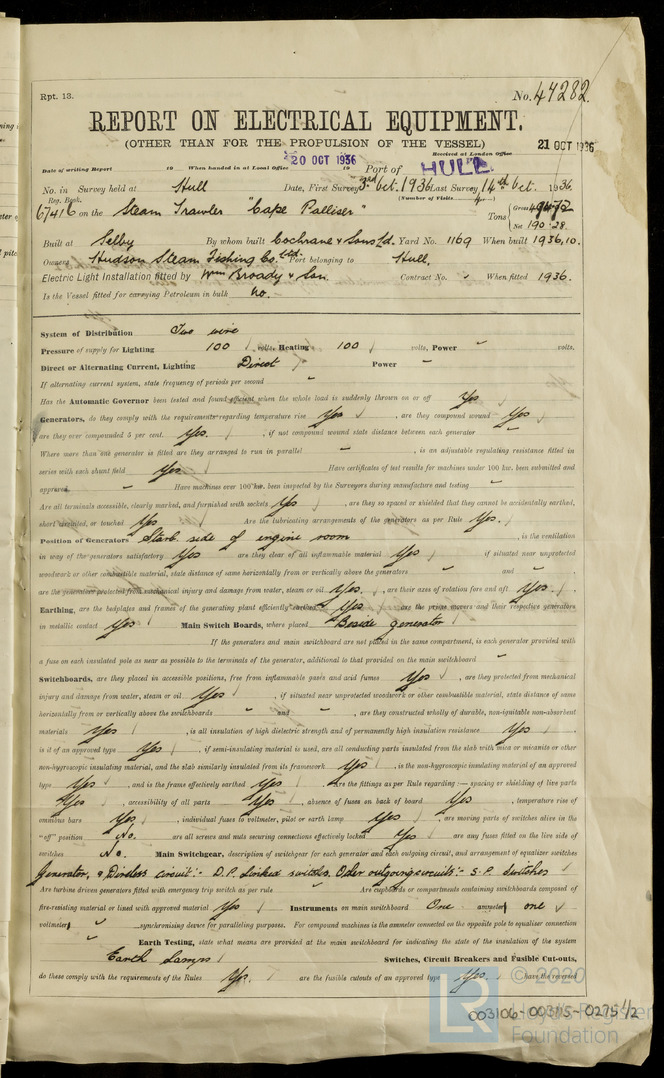 Rpt. 13.
No. 47282.
REPORT ON ELECTRICAL EQUIPMENT.
(OTHER THAN FOR THE PROPULSION OF THE VESSEL)
21 OCT 1936
20 OCT 1936
Received at London Office
Date of writing Report 19 When handed in at Local Office 19 Port of HULL
No. in Survey held at Hull Date, First Survey 3rd Oct. 1936 Last Survey 14th Oct. 1936.
Reg. Book. (Number of Visits 4)
67416 on the Steam Trawler "Cape Palliser" Tons { Gross
Net 190.28
Built at Selby By whom built Cochrane & Sons Ld. Yard No. 1169 When built 1936,10.
Owners Hudson Steam Fishing Co. Ltd. Port belonging to Hull.
Electric Light Installation fitted by Wm Broady & Son Contract No. When fitted 1936.
Is the Vessel fitted for carrying Petroleum in bulk No.
System of Distribution Two wire
Pressure of supply for Lighting 100 volts, Heating 100 volts, Power volts.
Direct or Alternating Current, Lighting Direct Power
If alternating current system, state frequency of periods per second
Has the Automatic Governor been tested and found efficient when the whole load is suddenly thrown on or off Yes
Generators, do they comply with the requirements regarding temperature rise Yes, are they compound wound Yes
are they over compounded 5 per cent. Yes., if not compound wound state distance between each generator
Where more than one generator is fitted are they arranged to run in parallel , is an adjustable regulating resistance fitted in
series with each shunt field Yes. Have certificates of test results for machines under 100 kw. been submitted and
approved Have machines over 100 kw. been inspected by the Surveyors during manufacture and testing
Are all terminals accessible, clearly marked, and furnished with sockets Yes, are they so spaced or shielded that they cannot be accidentally earthed,
short circuited, or touched Yes Are the lubricating arrangements of the generators as per Rule Yes.
Position of Generators Starb side of engine room, is the ventilation
in way of the generators satisfactory Yes are they clear of all inflammable material Yes if situated near unprotected
woodwork or other combustible material, state distance of same horizontally from or vertically above the generators and
are the generators protected from mechanical injury and damage from water, steam or oil Yes., are their axes of rotation fore and aft Yes.
Earthing, are the bedplates and frames of the generating plant efficiently earthed Yes are the prime movers and their respective generators
in metallic contact Yes Main Switch Boards, where placed Beside generator
If the generators and main switchboard are not placed in the same compartment, is each generator provided with
a fuse on each insulated pole as near as possible to the terminals of the generator, additional to that provided on the main switchboard
Switchboards, are they placed in accessible positions, free from inflammable gases and acid fumes Yes, are they protected from mechanical
injury and damage from water, steam or oil Yes, if situated near unprotected woodwork or other combustible material, state distance of same
horizontally from or vertically above the switchboards and , are they constructed wholly of durable, non-ignitable non-absorbent
materials Yes, is all insulation of high dielectric strength and of permanently high insulation resistance Yes,
is it of an approved type Yes, if semi-insulating material is used, are all conducting parts insulated from the slab with mica or micanite or other
non-hygroscopic insulating material, and the slab similarly insulated from its framework Yes, is the non-hygroscopic insulating material of an approved
type Yes, and is the frame effectively earthed Yes Are the fittings as per Rule regarding:— spacing or shielding of live parts
Yes, accessibility of all parts Yes, absence of fuses on back of board Yes, temperature rise of
omnibus bars Yes, individual fuses to voltmeter, pilot or earth lamp Yes, are moving parts of switches alive in the
"off" position No. are all screws and nuts securing connections effectively locked Yes are any fuses fitted on the live side of
switches No. Main Switchgear, description of switchgear for each generator and each outgoing circuit, and arrangement of equalizer switches
Generator, & Wireless circuit:- D.P. Linked switches. Other outgoing circuits:- S.P. switches
Are turbine driven generators fitted with emergency trip switch as per rule Are cupboards or compartments containing switchboards composed of
fire-resisting material or lined with approved material Yes Instruments on main switchboard One ammeter one
voltmeter synchronising device for paralleling purposes. For compound machines is the ammeter connected on the opposite pole to equaliser connection
Earth Testing, state what means are provided at the main switchboard for indicating the state of the insulation of the system
Earth Lamps Switches, Circuit Breakers and Fusible Cut-outs,
do these comply with the requirements of the Rules Yes. are the fusible cutouts of an approved type Yes have the reversed
LR
© 2020
Lloyd's Register
Foundation
003106-003115-0275 1/2